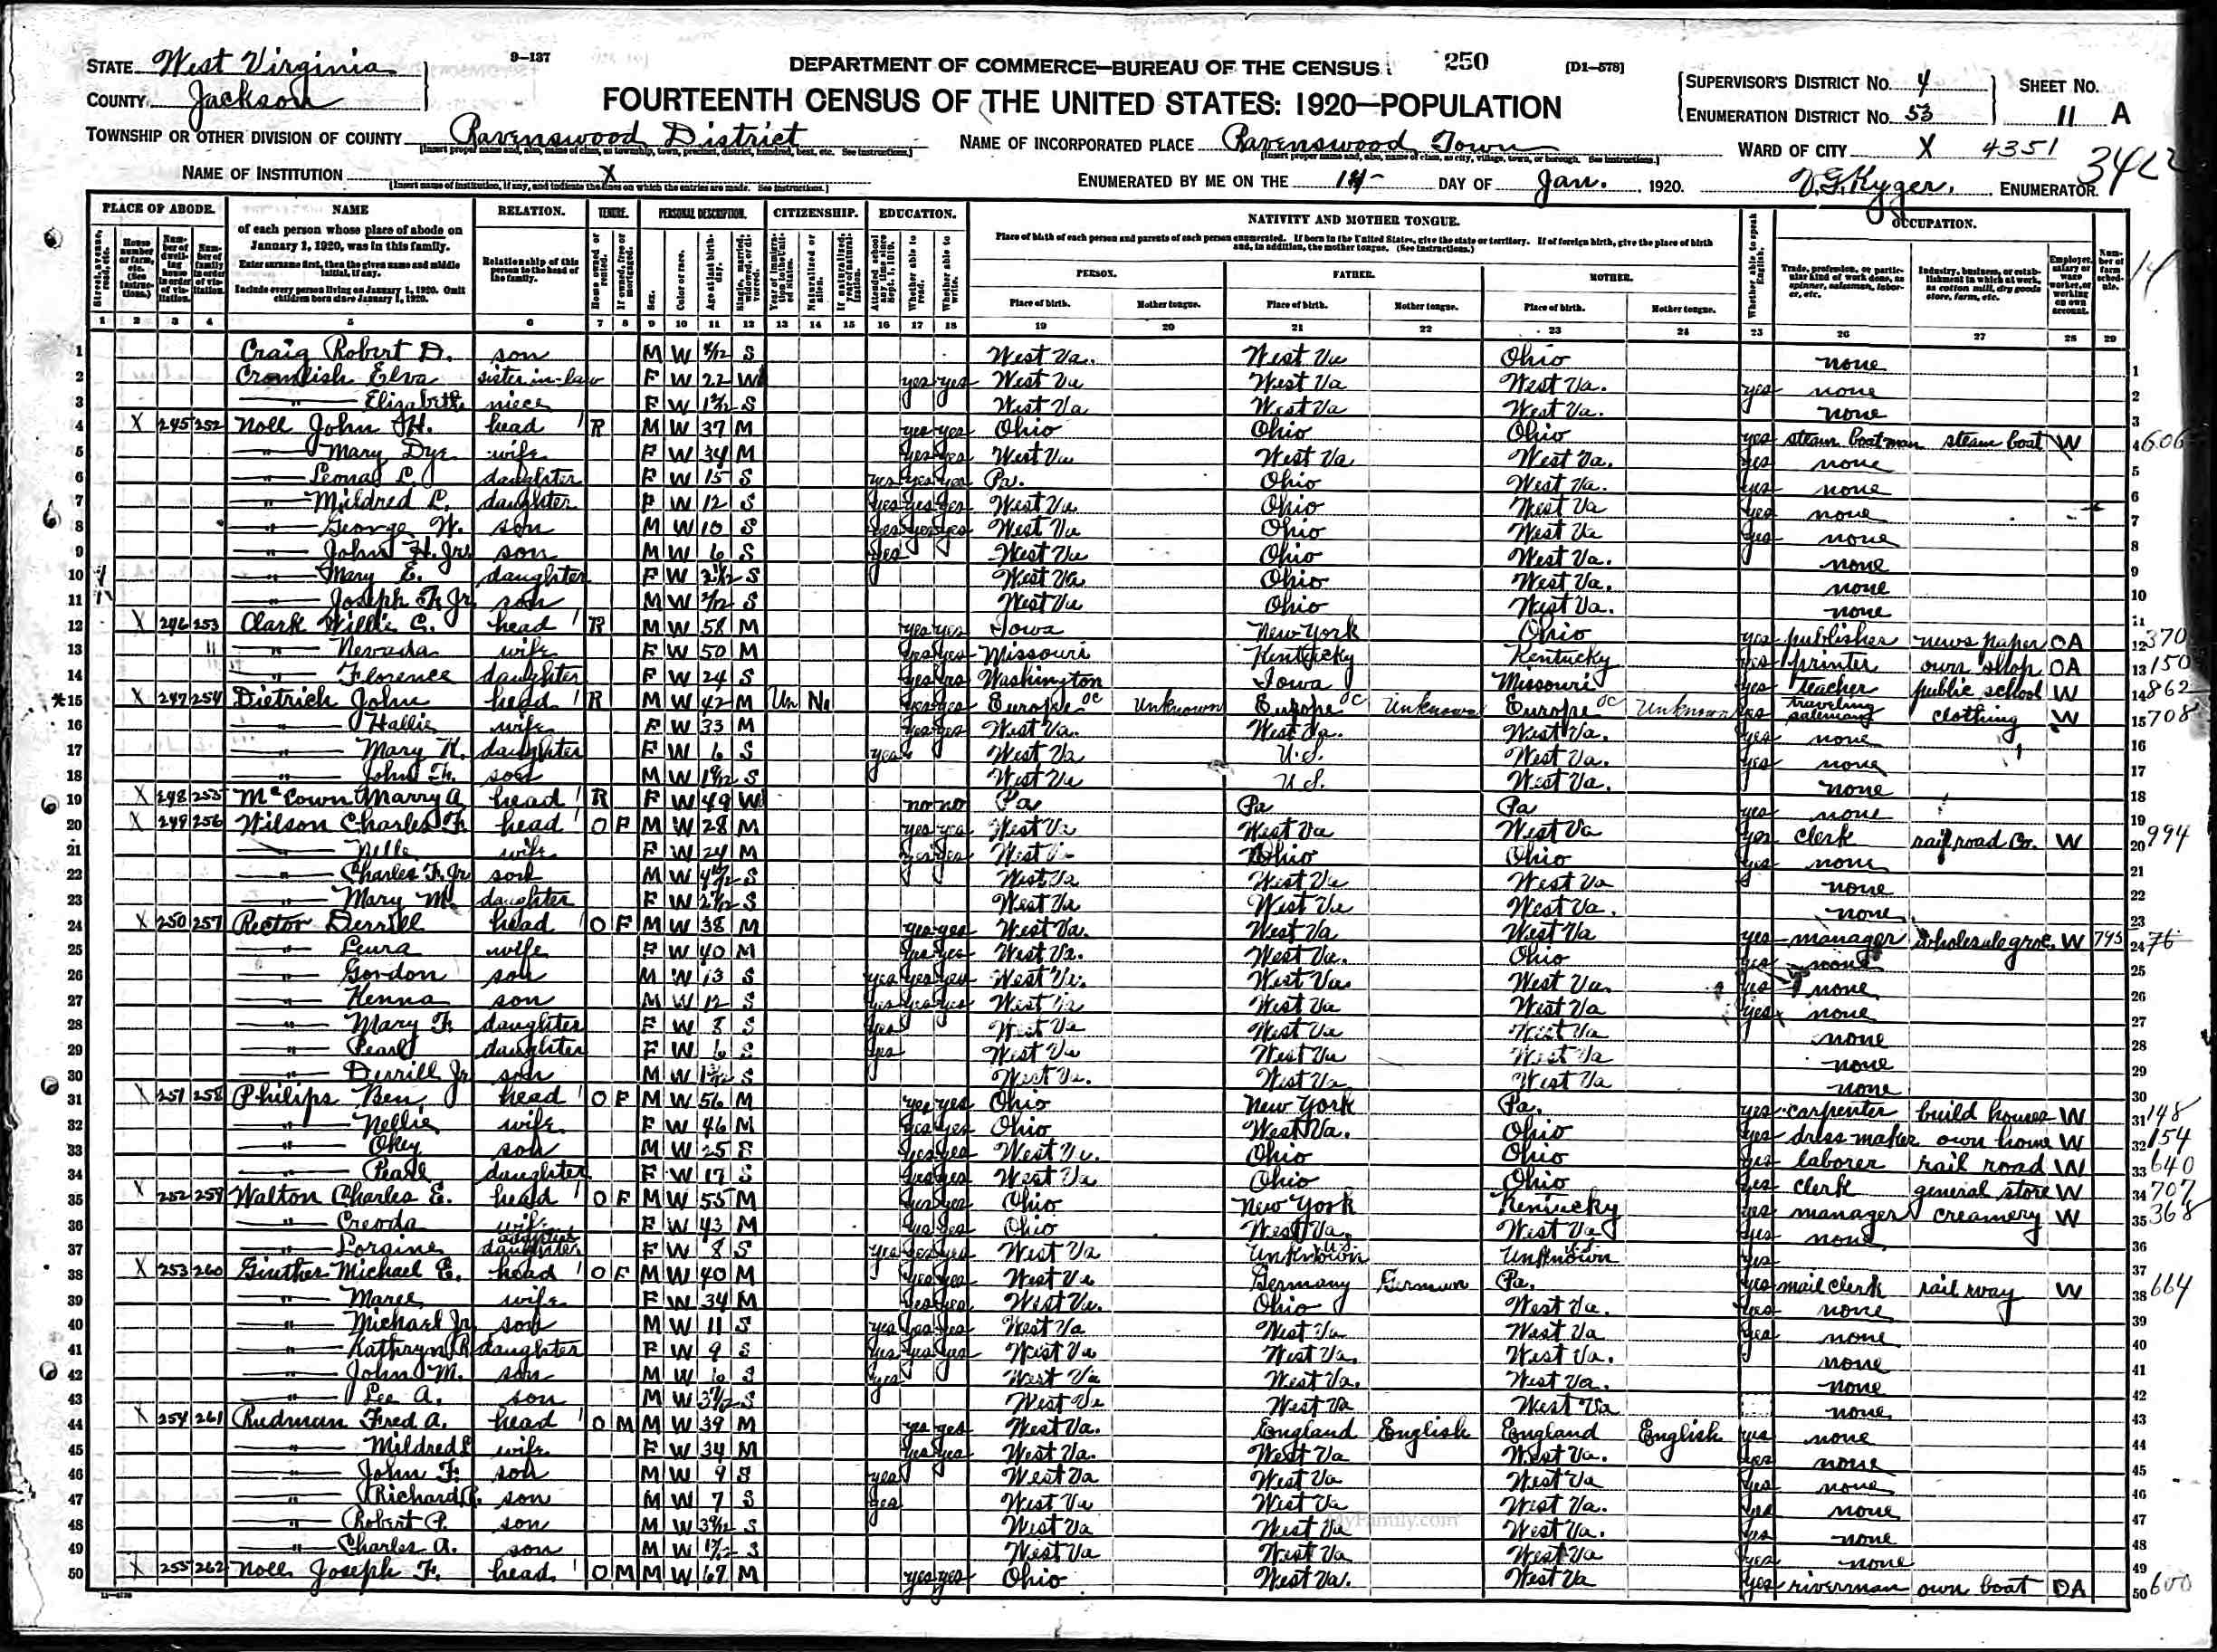 STATE West Virginia
COUNTY Jackson
9—137
DEPARTMENT OF COMMERCE—BUREAU OF THE CENSUS
250
[D1—578]
FOURTEENTH CENSUS OF THE UNITED STATES: 1920—POPULATION
SUPERVISOR'S DISTRICT No. 4
ENUMERATION DISTRICT No. 53
SHEET No. 11 A
TOWNSHIP OR OTHER DIVISION OF COUNTY Ravenswood District
[Insert proper name and, also, name of class, as township, town, precinct, district, hundred, beat, etc. See instructions.]
NAME OF INCORPORATED PLACE Ravenswood Town
[Insert proper name and, also, name of class, as city, village, town, or borough. See instructions.]
WARD OF CITY X 4351
NAME OF INSTITUTION X
[Insert name of institution, if any, and indicate the lines on which the entries are made. See instructions.]
ENUMERATED BY ME ON THE 14 DAY OF Jan. 1920. V.G. Kyger. ENUMERATOR.
PLACE OF ABODE. NAME RELATION. TENURE. PERSONAL DESCRIPTION. CITIZENSHIP. EDUCATION. NATIVITY AND MOTHER TONGUE. OCCUPATION.
of each person whose place of abode on January 1, 1920, was in this family.
Enter surname first, then the given name and middle initial, if any.
Include every person living on January 1, 1920. Omit children born since January 1, 1920.
Relationship of this person to the head of the family.
Place of birth of each person and parents of each person enumerated. If born in the United States, give the state or territory. If of foreign birth, give the place of birth and, in addition, the mother tongue. (See instructions.)
PERSON. FATHER. MOTHER.
Place of birth. Mother tongue. Place of birth. Mother tongue. Place of birth. Mother tongue.
1 2 3 4 5 6 7 8 9 10 11 12 13 14 15 16 17 18 19 20 21 22 23 24 25 26 27 28 29
1 Craig Robert D. son M W S West Va. West Va Ohio none
2 Elva sister-in-law F W 22 Wd yes yes West Va West Va West Va. yes none
3 " Elizabeth niece F W S West Va West Va West Va. none
4 X 245 252 Noll John H. head R M W 37 M yes yes Ohio Ohio Ohio yes steam boatman steam boat W 606
5 " Mary Dye wife F W 34 M yes yes West Va West Va West Va. yes none
6 " L. daughter F W 15 S yes yes yes Pa. Ohio West Va. yes none
7 " Mildred L. daughter F W 12 S yes yes yes West Va Ohio West Va yes none
8 " George W. son M W 10 S yes yes yes West Va Ohio West Va yes none
9 " John H. Jr. son M W 6 S yes West Va Ohio West Va. none
10 " Mary E. daughter F W S West Va Ohio West Va. none
11 " Joseph F. Jr. son M W S West Va Ohio West Va. none
12 X 246 253 Clark Willis C. head R M W 58 M yes yes Iowa New York Ohio yes publisher news paper OA 370
13 " Nevada wife F W 50 M yes yes Missouri Kentucky Kentucky yes printer own shop OA 150
14 " Florence daughter F W 24 S yes yes Washington Iowa Missouri yes teacher public school W 862
*15 X 247 254 Dietrich John head R M W 42 M Un Na yes yes Europe oc Unknown Europe oc Unknown Europe oc Unknown yes traveling salesman clothing W 708
16 " Hallie wife F W 33 M yes yes West Va. West Va. West Va. yes none
17 " Mary K. daughter F W 6 S yes West Va U.S. West Va. yes none
18 " John Th. son M W S West Va U.S. West Va. none
19 X 248 255 McCown Marry A. head R F W 49 Wd no no Pa Pa Pa yes none
20 X 249 256 Wilson Charles F. head O F M W 28 M yes yes West Va West Va West Va yes clerk rail road Co. W 994
21 " Nelle wife F W 24 M yes yes West Va Ohio Ohio yes none
22 " Charles F. Jr. son M W S West Va West Va West Va none
23 " Mary M. daughter F W S West Va West Va West Va. none
24 X 250 257 Rector Derrill head O F M W 38 M yes yes West Va. West Va West Va yes manager wholesale groc. W 76
25 " Leura wife F W 40 M yes yes West Va. West Va. Ohio yes none
26 " Gordon son M W 13 S yes yes yes West Va. West Va. West Va. yes none
27 " Kenna son M W 12 S yes yes yes West Va West Va West Va yes none
28 " Mary F. daughter F W 8 S yes West Va West Va West Va none
29 " Pearl daughter F W 6 S yes West Va West Va West Va none
30 " Derrill Jr. son M W S West Va. West Va West Va none
31 X 251 258 Philips Ben head O F M W 56 M yes yes Ohio New York Pa. yes carpenter build houses W 148
32 " Nellie wife F W 46 M yes yes Ohio West Va. Ohio yes dress maker own home W 154
33 " Okey son M W 25 S yes yes West Va. Ohio Ohio yes laborer rail road W 640
34 " Pearl daughter F W 17 S yes yes West Va Ohio Ohio yes clerk general store W 707
35 X 252 259 Walton Charles E. head O F M W 55 M yes yes Ohio New York Kentucky yes manager creamery W 368
36 " Creoda wife F W 43 M yes yes Ohio West Va. West Va yes none
37 " Loraine adopted daughter F W 8 S yes yes yes West Va Unknown Unknown yes
38 X 253 260 Ginther Michael E. head O F M W 40 M yes yes West Va Germany German Pa. yes mail clerk rail way W 664
39 " Maree wife F W 34 M yes yes West Va. Ohio West Va. yes none
40 " Michael Jr. son M W 11 S yes yes yes West Va West Va West Va yes none
41 " Kathryn R. daughter F W 9 S yes yes yes West Va West Va. West Va. none
42 " John M. son M W 6 S yes West Va West Va. West Va. none
43 " Lee A. son M W S West Va West Va West Va none
44 X 254 261 Redman Fred A. head O M M W 39 M yes yes West Va. England English England English yes none
45 " Mildred L wife F W 34 M yes yes West Va. West Va West Va. yes none
46 " John F. son M W 9 S yes West Va West Va West Va yes none
47 " Richard son M W 7 S yes West Va West Va West Va. yes none
48 " Robert P. son M W S West Va West Va West Va. yes none
49 " Charles A. son M W S West Va West Va West Va yes none
50 X 255 262 Noll Joseph F. head O M M W 67 M yes yes Ohio West Va. West Va yes riverman own boat OA 600
MyFamily.com